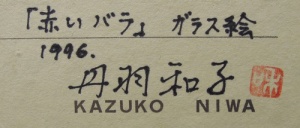 「赤いバラ」 ガラス絵
1996.
丹羽和子
KAZUKO NIWA